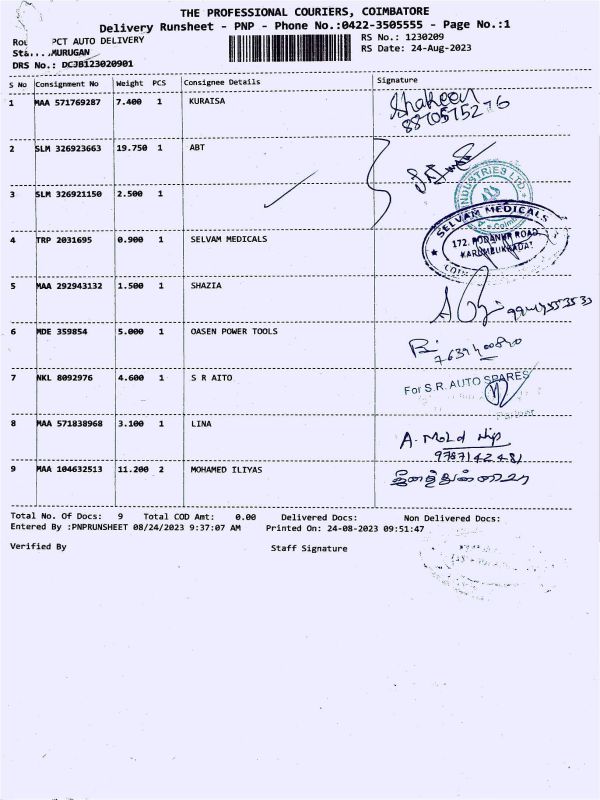 THE PROFESSIONAL COURIERS, COIMBATORE
Delivery Runsheet - PNP - Phone No.:0422-3505555 - Page No.:1
PCT AUTO DELIVERY
RS No.: 1230209
MURUGAN
RS Date: 24-Aug-2023
DRS No.: DCJB123020901
S No Consignment No Weight PCS Consignee Details Signature
1 MAA 571769287 7.400 1 KURAISA
Shakeen
8870575276
2 SLM 326923663 19.750 1 ABT
INDUSTRIES LTD.
3 SLM 326921150 2.500 1
SELVAM MEDICALS
4 TRP 2031695 0.900 1 SELVAM MEDICALS
172, PODANUR ROAD,
5 MAA 292943132 1.500 1 SHAZIA
6 MDE 359854 5.000 1 OASEN POWER TOOLS
7 NKL 8092976 4.600 1 S R AITO
For S.R. AUTO SPARES
Partner
8 MAA 571838968 3.100 1 LINA
9787142481
9 MAA 104632513 11.200 2 MOHAMED ILIYAS
Total No. Of Docs: 9 Total COD Amt: 0.00 Delivered Docs: Non Delivered Docs:
Entered By :PNPRUNSHEET 08/24/2023 9:37:07 AM Printed On: 24-08-2023 09:51:47
Verified By Staff Signature